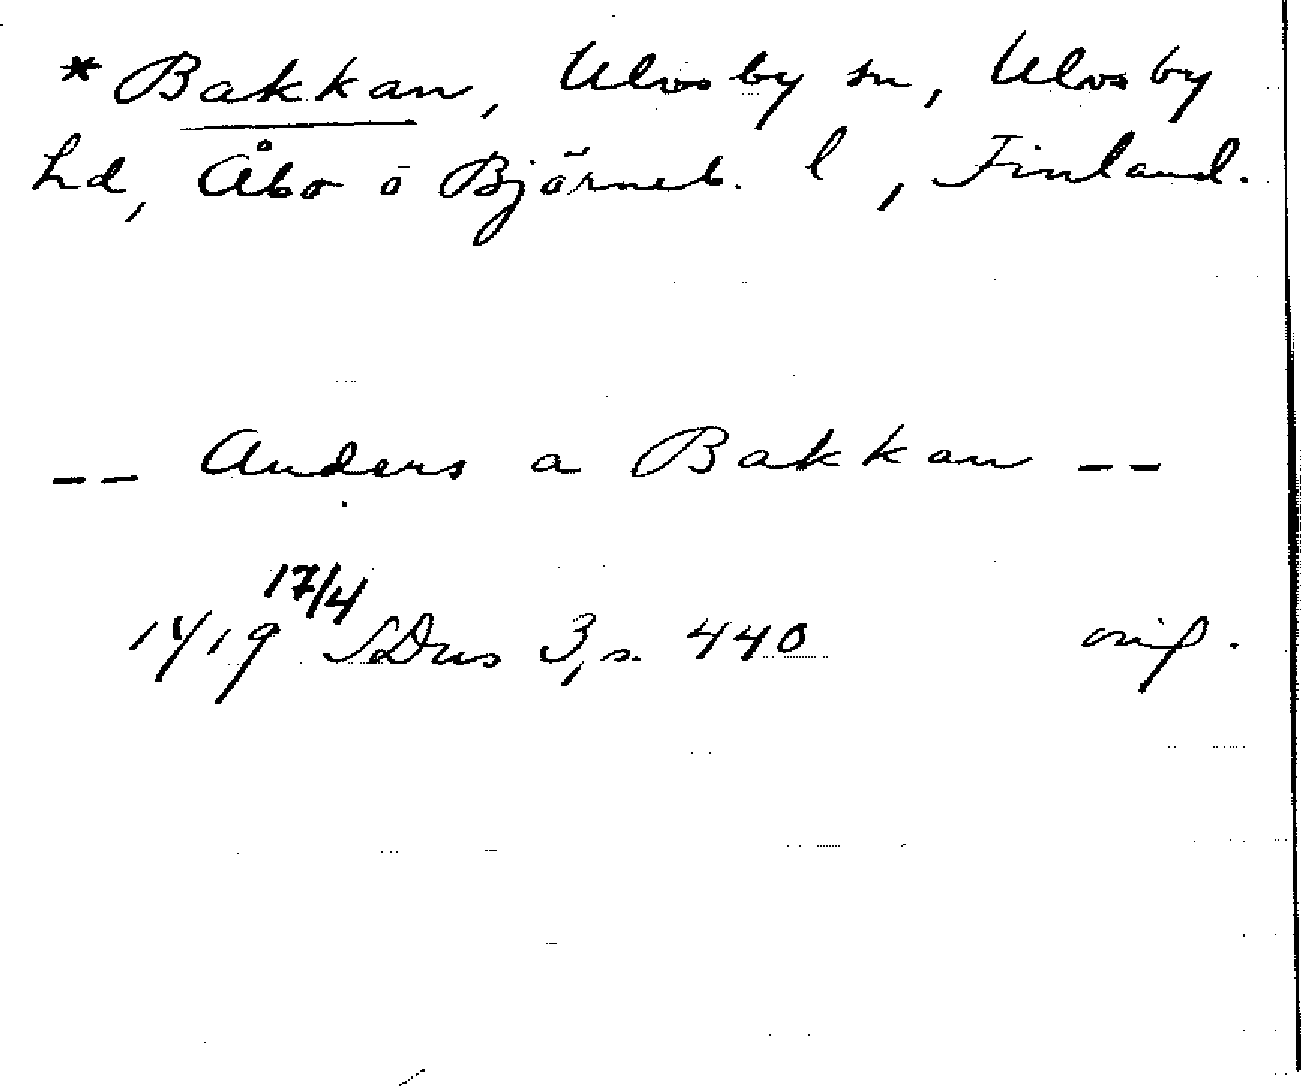 *Bakkan, Ulvsby sn, Ulvsby
hd, Åbo o Björneb. l, Finland.
-- Anders a Bakkan --
1419 17/4 SDns 3, s. 440 orig.